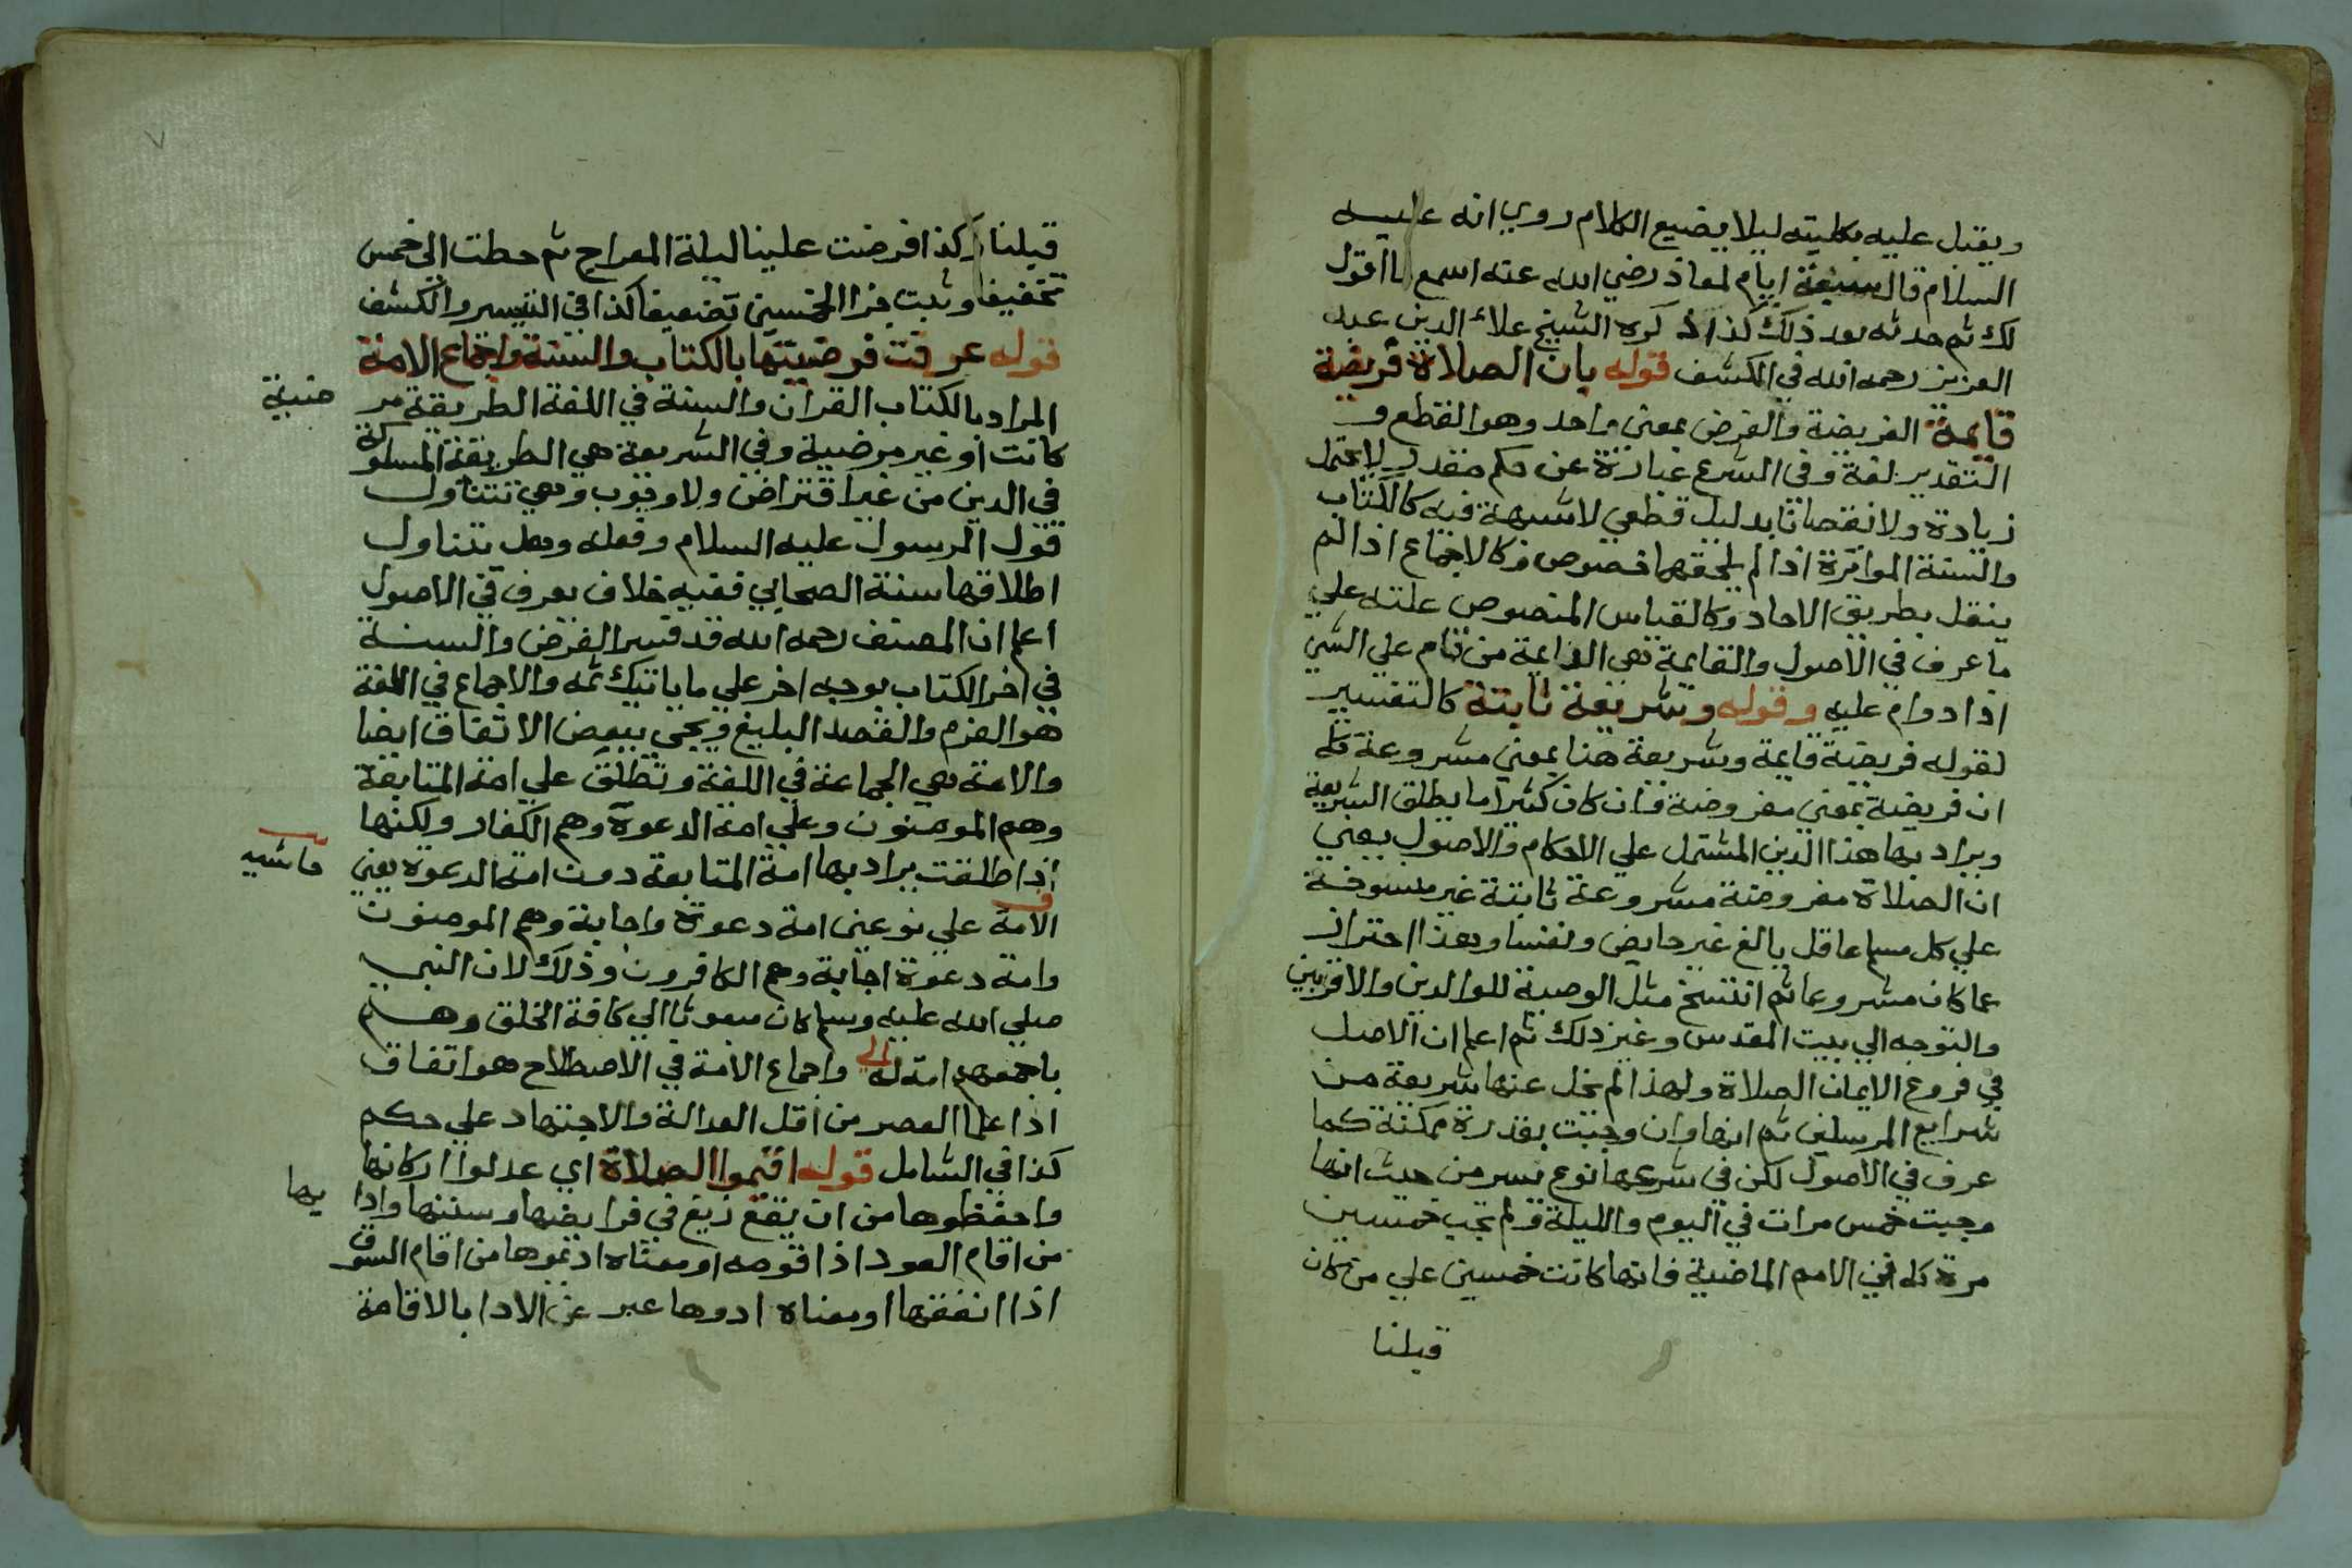 ويقبل عليه بكليته ليلا يضيع الكلام روي انه عليه
السلام قال سبعة ايام لمعاذ رضي الله عنه اسمع ما اقول
لك ثم حدثه بعد ذلك كذا ذكره الشيخ علاء الدين عبد
العزيز رحمه الله في الكشف قوله بان الصلاة فريضة
قايمة الفريضة والفرض بمعنى واحد وهو القطع و
التقدير لغة وفي الشرع عبارة عن حكم مقدر لا يحتمل
زيادة ولا نقصانا بدليل قطعي لا شبهة فيه كالكتاب
والسنة المواترة اذا لم يلحقهما خصوص وكالاجماع اذا لم
ينقل بطريق الاحاد وكالقياس المنصوص علته علي
ما عرف في الاصول والقايمة هي الدايمة من قام علي الشي
اذا دوام عليه وقوله وشريعة ثابتة كالتفسير
لقوله فريضة قايمة وشريعة هنا بمعنى مشروعة كما
ان فريضة بمعنى مفروضة فان كان كثيرا ما يطلق الشريعة
ويراد بها هذا الدين المشتمل علي الاحكام والاصول يعني
ان الصلاة مفروضة مشروعة ثابتة غير منسوخة
علي كل مسلم عاقل بالغ غير حايض ونفسا وبهذا احتراز
عما كان مشروعا ثم انتسخ مثل الوصية للوالدين والاقربين
والتوجه الي بيت المقدس وغير ذلك ثم اعلم ان الاصل
في فروع الايمان الصلاة ولهذا لم تخل عنها شريعة من
شرايع المرسلين ثم انها وان وجبت بقدرة ممكنة كما
عرف في الاصول لكن في شرعها نوع يسر من حيث انها
وجبت خمس مرات في اليوم والليلة ولم تجب خمسين
مرة كما في الامم الماضية فانها كانت خمسين علي من كان
قبلنا
قبلنا وكذا فرضت علينا ليلة المعراج ثم حطت الى خمس
تخفيفا وثبت جزا الخمسين تضعيفا كذا في التيسر والكشف
قوله عرفت فرضيتها بالكتاب والسنة واجماع الامة
المراد بالكتاب القران والسنة في اللغة الطريقة مر ضية
كانت او غير مرضية وفي الشريعة هي الطريقة المسلوكة
في الدين من غير افتراض ولا وجوب وهي تتناول
قول الرسول عليه السلام وفعله وهل يتناول
اطلاقها سنة الصحابي ففيه خلاف يعرف في الاصول
اعلم ان المصنف رحمه الله قد فسر الفرض والسنة
في اخر الكتاب بوجه اخر علي ما ياتيك ثمه والاجماع في اللغة
هو العزم والقصد البليغ ويجي ببعض الاتفاق ايضا
والامة هي الجماعة في اللغة وتطلق علي امة المتابعة
وهم المومنون وعلي امة الدعوة وهم الكفار ولكنها
اذا طلقت يراد بها امة المتابعة دون امة الدعوة يعني
حاشيه
الامة علي نوعين امة دعوة واجابة وهم المومنون
وامة دعوة اجابة وهم الكافرون وذلك لان النبي
صلي الله عليه وسلم كان مبعوثا الي كافة الخلق وهم
باجمعهم امة له الي واجماع الامة في الاصطلاح هو اتفاق
اذا علما العصر من اقل العدالة والاجتهاد علي حكم
كذا في الشامل قوله اقيموا الصلاة اي عدلوا اركانها
واحفظوها من ان يقع زيغ في فرايضها وسننها وادا بها
من اقام العود اذا قومه او معناه اديموها من اقام السوق
اذا انفقها او معناه ادوها عبر عن الادا بالاقامة